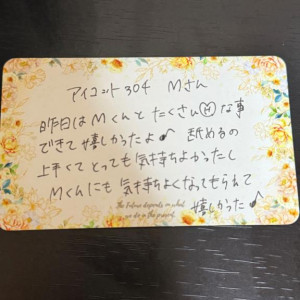 アイコット304 Mさん
昨日はMくんとたくさんHな事
できて嬉しかったよ♪ 舐めるの
上手くてとっても気持ちよかったし
Mくんにも気持ちよくなってもらえて
嬉しかった♪
The future depends on what
we do in the present.